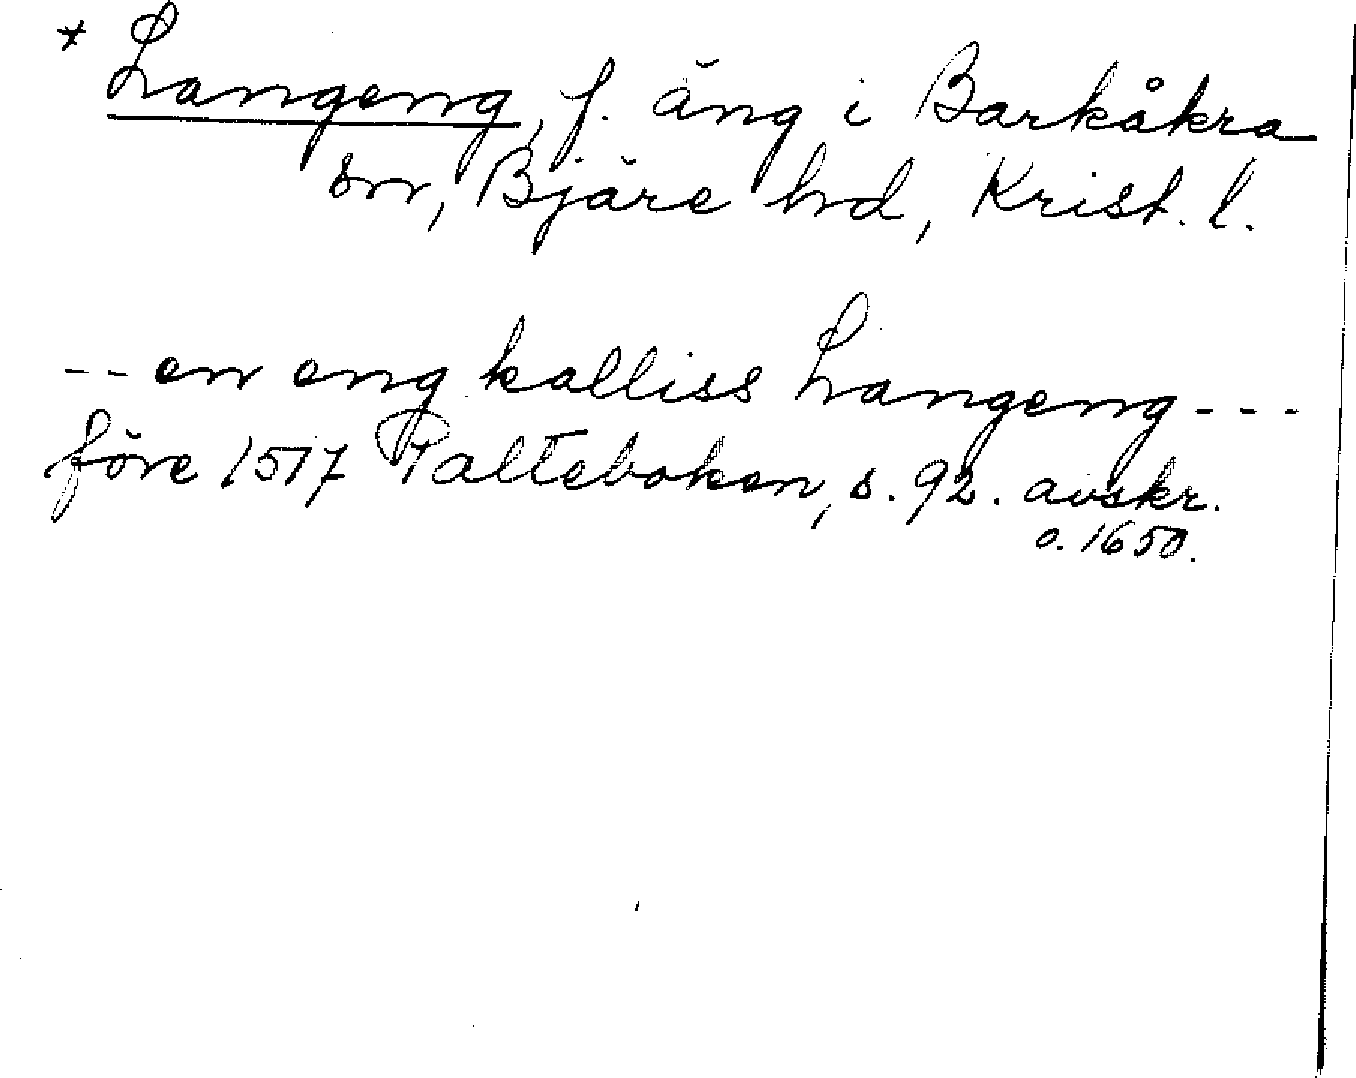 * Langeng, f. äng i Barkåkra
sn, Bjäre hd, Krist. l.
-- en eng kalliss Langeng ---
före 1517 Palteboken, s. 92. avskr.
o. 1650.